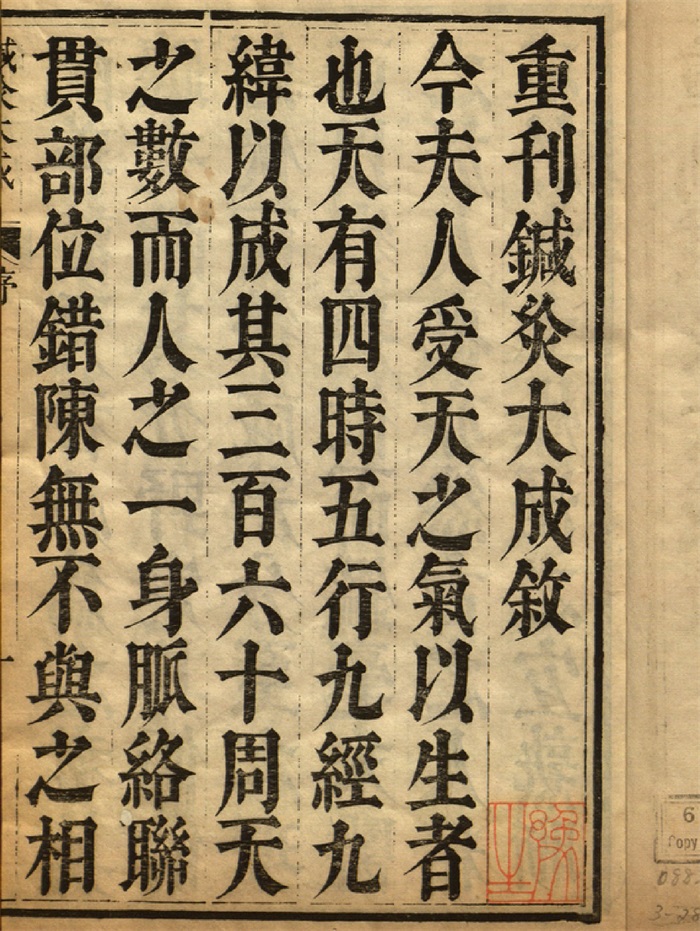 重刊鍼灸大成敘
今夫人受天之氣以生者
也天有四時五行九經九
緯以成其三百六十周天
之數而人之一身脈絡聯
貫部位錯陳無不與之相
序
一
6
Copy